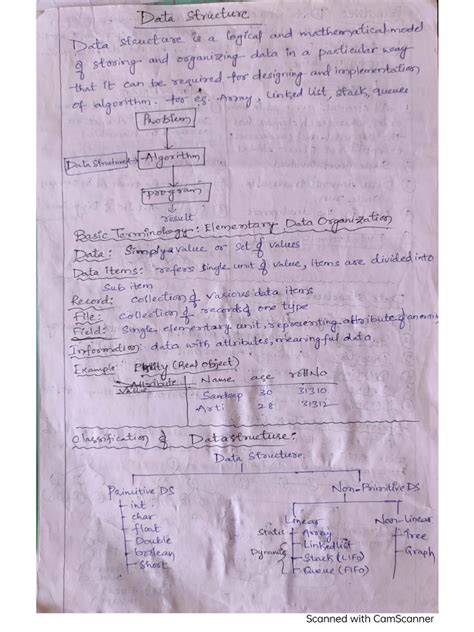 Data Structure
Data structure is a logical and mathematical model
of storing and organizing data in a particular way
that it can be required for designing and implementation
of algorithm. for eg. Array, Linked list, stack, queues
Problem
Data Structure → Algorithm
program
result
Basic Terminology: Elementary Data Organization
Data: Simply value or set of values
Data Items: refers single unit of value, items are divided into
Sub item
Record: collection of various data items
File: collection of records of one type
Field: Single elementary unit, representing attribute of an
Information: data with attributes, meaningful data.
Example Entity (Real object)
Attribute Name age rollNo
Value Sandeep 30 31310
Arti 28 31312
Classification of Datastructure:
Data Structure
Primitive DS Non-Primitive DS
int
char
float
Double
boolean
Short
Linear Non-Linear
Static Array Tree
Dynamic Linkedlist Graph
Stack (LIFO)
Queue (FIFO)
Scanned with CamScanner